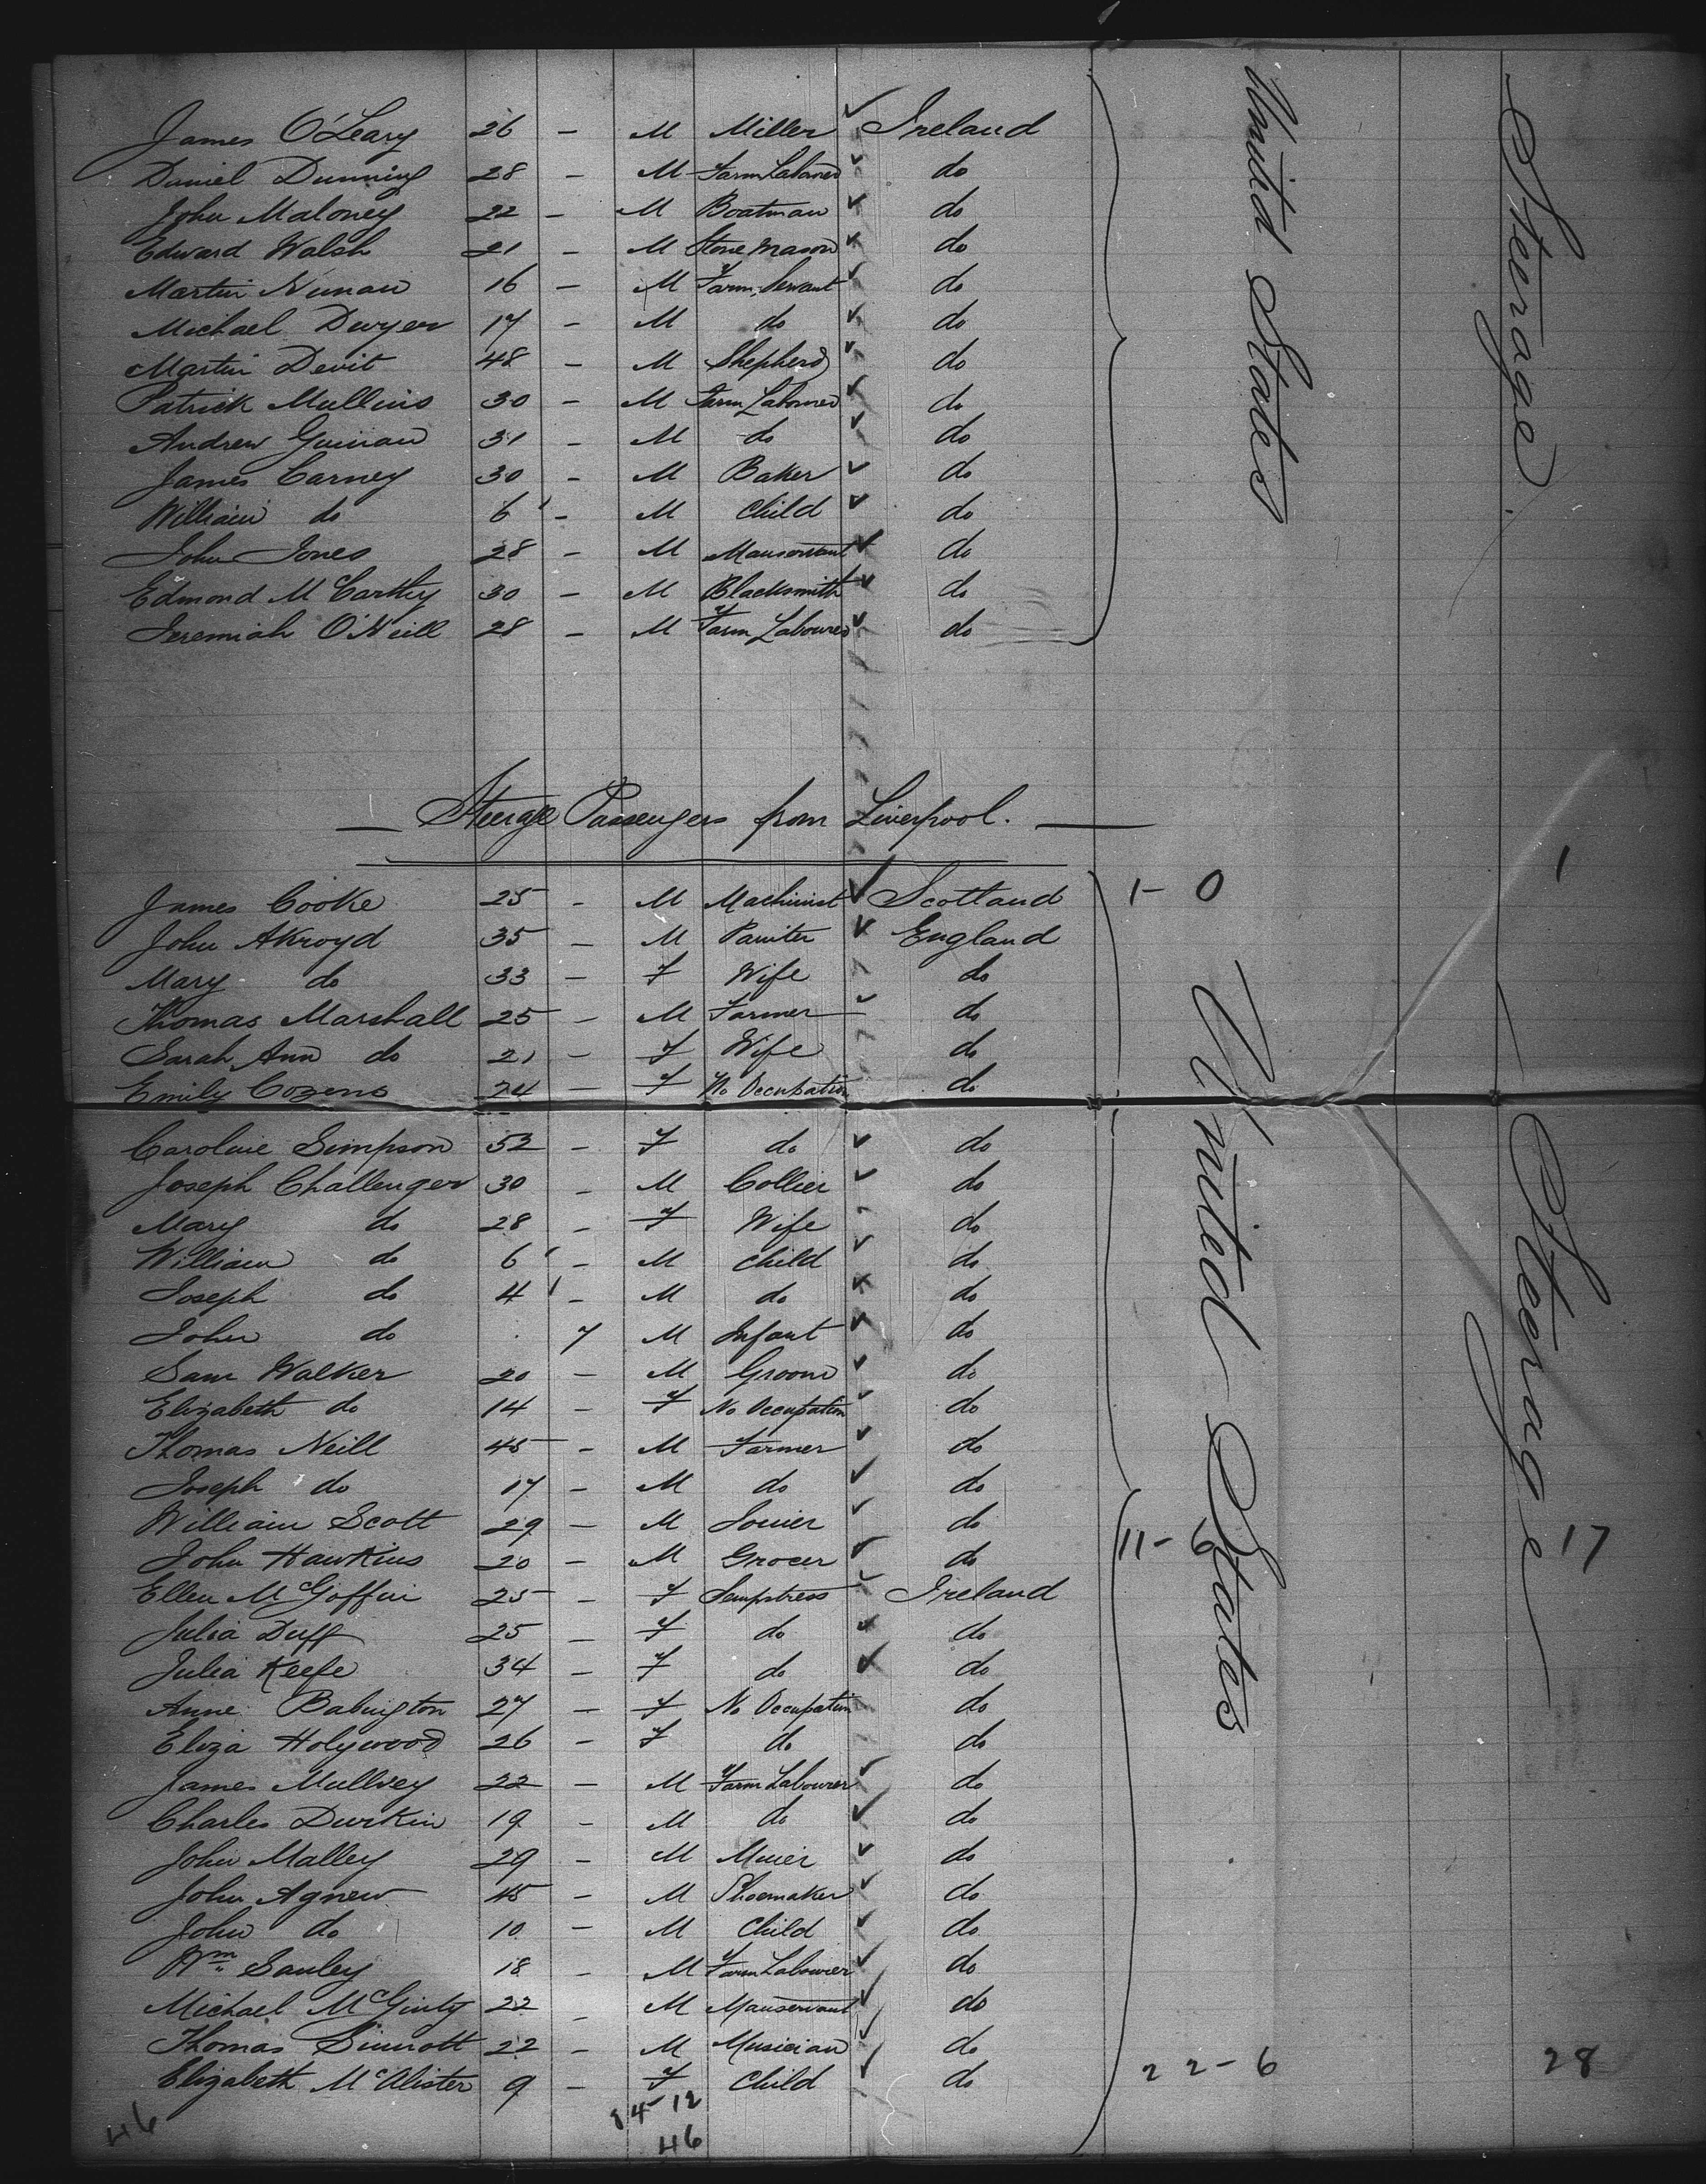 James O'Leary 26 - M Miller Ireland
Daniel Dunning 28 - M Farm Labourer do
John Maloney 22 - M Boatman do
Edward Walsh 21 - M Stone Mason do
Martin Nunan 16 - M Farm Servant do
Michael Dwyer 17 - M do do
Martin Devit 48 - M Shepherd do
Patrick Mullins 30 - M Farm Labourer do
Andrew Guinan 31 - M do do
James Carney 30 - M Baker do
William do 6 - M Child do
John Jones 28 - M Manservant do
Edmond McCarthy 30 - M Blacksmith do
Jeremiah O'Neill 28 - M Farm Labourer do
United States
Steerage
Steerage Passengers from Liverpool.
James Cooke 25 - M Machinist Scotland 1- 0 1
John Akroyd 35 - M Painter England
Mary do 33 - F Wife do
Thomas Marshall 25 - M Farmer do
Sarah Ann do 21 - F Wife do
Emily Cozens 24 - F No Occupation do
Caroline Simpson 52 - F do do
Joseph Challenger 30 - M Collier do
Mary do 28 - F Wife do
William do 6 - M Child do
Joseph do 4 - M do do
John do 7 M Infant do
Sam Walker 20 - M Groom do
Elizabeth do 14 - F No Occupation do
Thomas Neill 45 - M Farmer do
Joseph do 17 - M do do
William Scott 29 - M Joiner do
John Hawkins 20 - M Grocer do 11-6 17
Ellen McGoffin 25 - F Sempstress Ireland
Julia Duff 25 - F do do
Julia Keefe 34 - F do do
Anne Babington 27 - F No Occupation do
Eliza Holywood 26 - F do do
James Mullvey 22 - M Farm Labourer do
Charles Durkin 19 - M do do
John Malley 29 - M Miner do
John Agnew 45 - M Shoemaker do
John do 10 - M Child do
Wm Sanley 18 - M Farm Labourer do
Michael McGinty 22 - M Manservant do
Thomas Sinnott 22 - M Musician do
Elizabeth McAlister 9 - F Child do 22-6 28
United States
Steerage
46 12
46